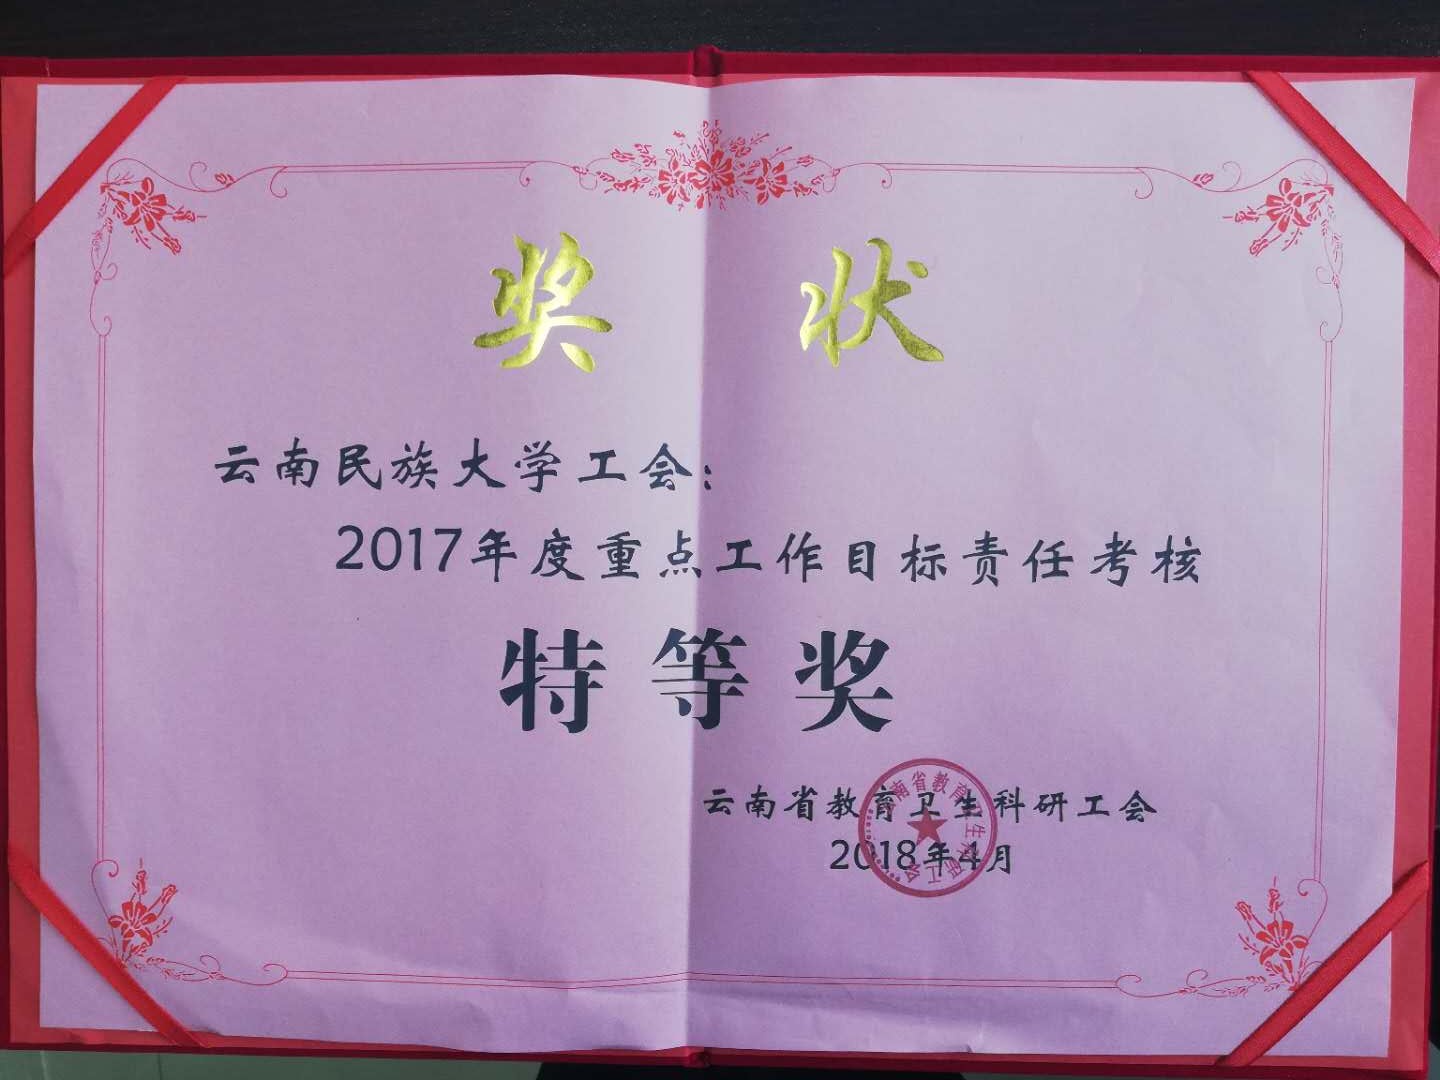 奖状
云南民族大学工会：
2017年度重点工作目标责任考核
特等奖
云南省教育卫生科研工会
2018年4月
云南省教育卫生科研工会